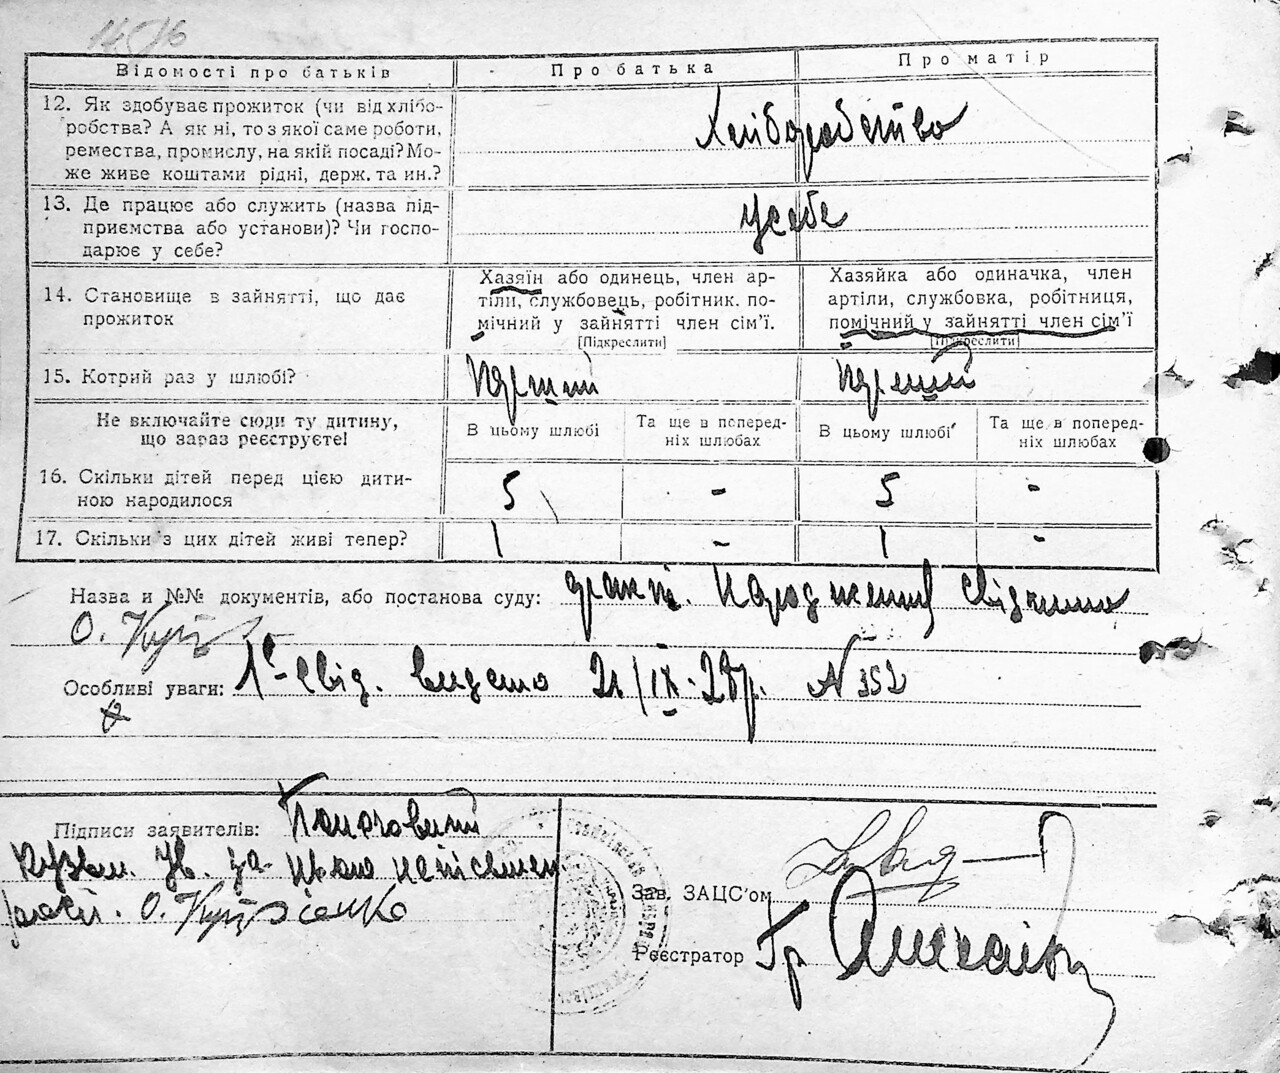 Відомості про батьків
Про батька
Про матір
12. Як здобуває прожиток (чи від хлібо-
робства? А як ні, то з якої саме роботи,
ремества, промислу, на якій посаді? Мо-
же живе коштами рідні, держ. та ин.?
Хліборобство
13. Де працює або служить (назва під-
приємства або установи)? Чи госпо-
дарює у себе?
У себе
14. Становище в зайнятті, що дає
прожиток
Хазяїн або одинець, член ар-
тіли, службовець, робітник. по-
мічний у зайнятті член сім’ї.
[Підкреслити]
Хазяйка або одиначка, член
артіли, службовка, робітниця,
помічний у зайнятті член сім’ї
[Підкреслити]
15. Котрий раз у шлюбі?
Перший
Перший
Не включайте сюди ту дитину,
що зараз реєструєте!
В цьому шлюбі
Та ще в поперед-
ніх шлюбах
В цьому шлюбі
Та ще в поперед-
ніх шлюбах
16. Скільки дітей перед цією дити-
ною народилося
5
-
5
-
17. Скільки з цих дітей живі тепер?
1
-
1
-
Назва и №№ документів, або постанова суду:
О.
Особливі уваги:
свід. видано 21/IX-28р. N 352
Підписи заявителів:
О.
Зав. ЗАЦС’ом
Реєстратор